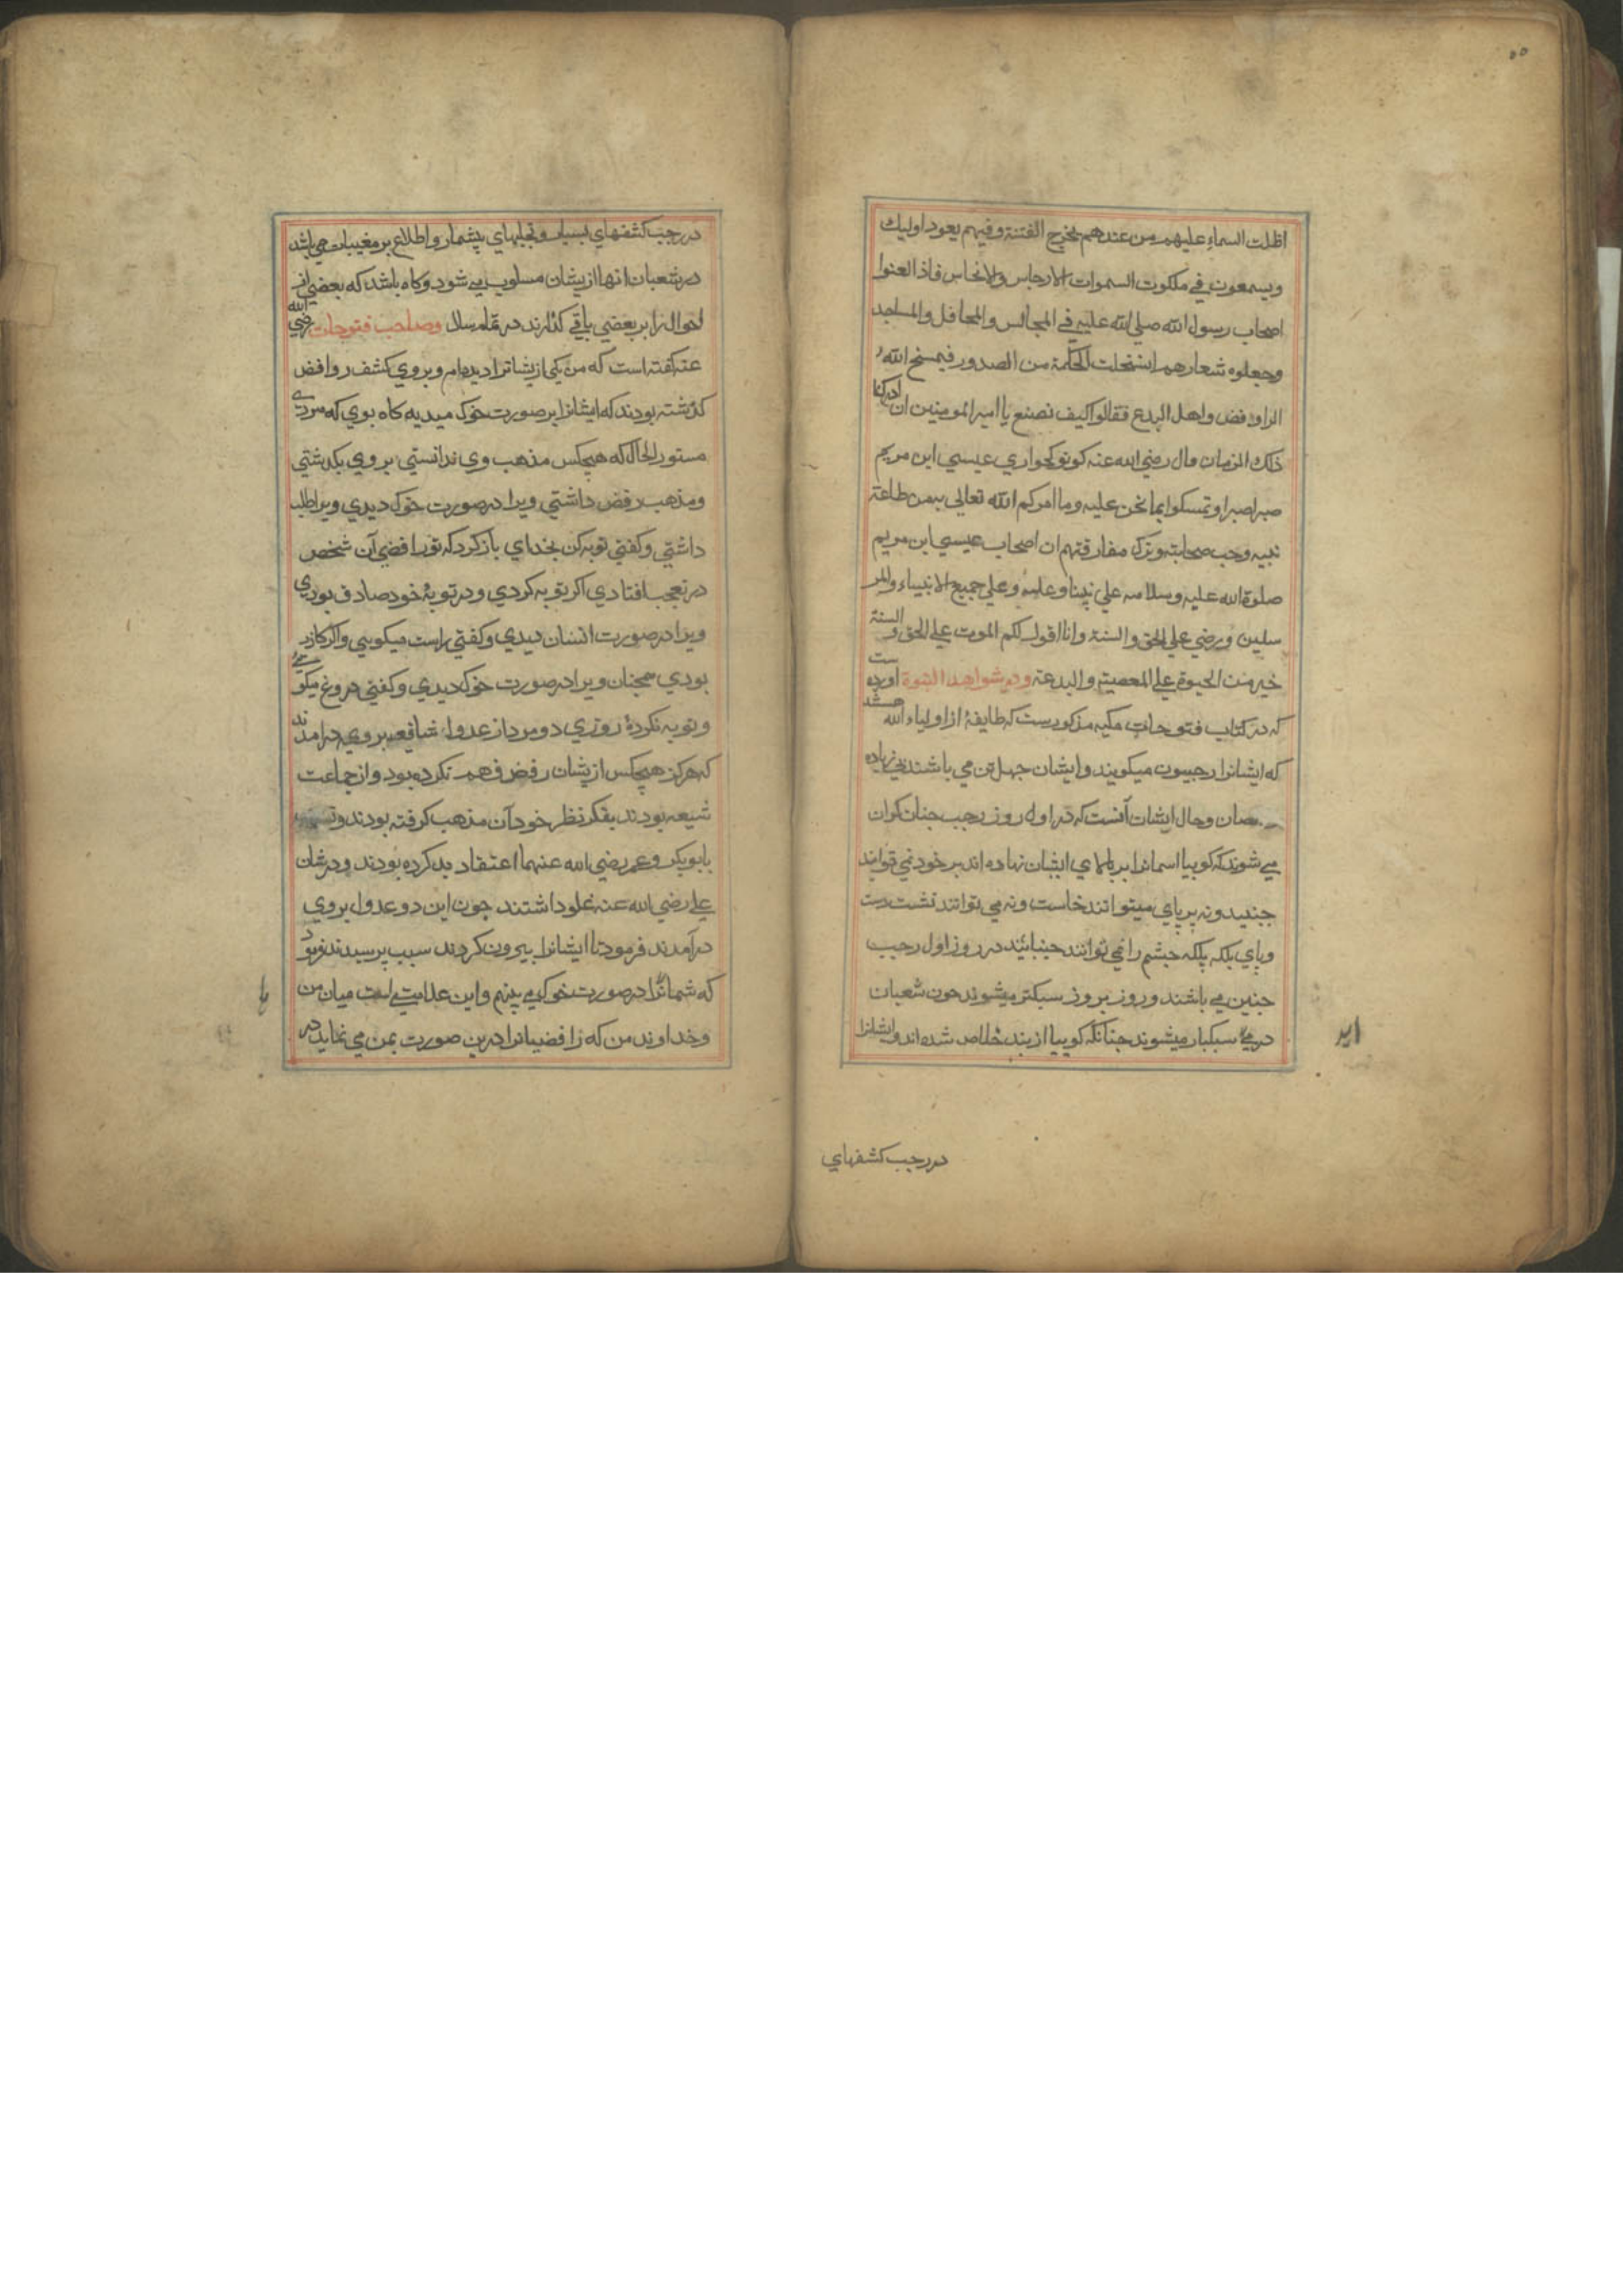 ۵۵
اظلت السماء عليهم من عندهم يخرج الفتنة وفيهم يعود اوليك
ويسمعون في ملكوت السموات الارجاس والانجاس فاذا لعنوا
اصحاب رسول الله صلي الله عليه في المجالس والمحافل والمساجد
وجعلوه شعارهم الحكمة من الصدور فيمسخ الله
الروافض واهل البدع فقالوا كيف نصنع يا امير المومنين ان ادركنا
ذلك الزمان قال رضي الله عنه كونو كحواري عيسي ابن مريم
صبرا صبرا وتمسكوا بما نحن عليه وما امركم الله تعالي بيمن طاعة
نبيه وحب صحابته وترك مفارقتهم ان اصحاب عيسي ابن مريم
صلوة الله عليه وسلامه علي نبينا وعليه وعلي جميع الانبياء والمر
سلين ورضي علي الحق والسنة وانا اقول لكم الموت علي الحق و السنة
خير من الحيوة علي المعصية والبدعة ودر شواهد النبوة اورده ست
كه در كتاب فتوحات مكيه مذكورست كه طايفۀ از اولياء الله هستند
كه ايشانرا رجبيون ميكويند وايشان جهل تن مي باشند بي زياده
نقصان وحال ايشان آنست كه در اول روز رجب جنان كران
مي شوند كه كوييا اسمانرا بر بالاي ايشان نهاده اند بر خود نمي توانند
جنبيد ونه بر پاي ميتوانند خاست ونه مي توانند نشست ودست
وپاي بلكه پلكه جشم را نمي توانند جنبانند در روز اول رجب
جنين مي باشند وروز بروز سبكتر ميشوند جون شعبان
در مي سبكبار ميشوند جنانكه كوييا از بند خلاص شده اند وايشانرا
ايد
در رجب كشفهاي
در رجب كشفهاي بسيار وتجليهاي بيشمار واطلاع بر مغيبات مي باشد
در شعبان انها از يشان مسلوب مي شود وكاه باشد كه بعضي از
احوال را بر بعضي باقي كذارند در تمام سال وصاحب فتوحات رضي الله
عنه كفته است كه من يكي از يشانرا ديده ام وبر وي كشف روافض
كذشته بودند كه ايشانرا بر صورت خوك ميديد كاه بودي كه مردي
مستور الحال كه هيچكس مذهب وي ندانستي بر وي بكذشتي
ومذهب رفض داشتي ويرا در صورت خوك ديدي ويرا طلب
داشتي وكفتي توبه كن بخداي باز كرد كه تو رافضي آن شخص
در تعجب افتادي اكر توبه كردي ودر توبۀ خود صادق بودي
ويرا در صورت انسان ديدي وكفتي راست ميكويي واكر كاذب
بودي همچنان ويرا در صورت خوك ديدي وكفتي دروغ ميكويي
وتوبه نكردۀ روزي دو مرد از عدول شافعيه بر وي درامدند
كه هركز هيچكس از يشان رفض فهم نكرده بود واز جماعت
شيعه نبودند بفكر نظر خود آن مذهب كرفته بودند و
بابوبكر وعمر رضي الله عنهما اعتقاد بد كرده بودند ودر شان
علي رضي الله عنه غلو داشتند جون اين دو عدول بر وي
درآمدند فرمود تا ايشانرا بيرون كردند سبب پرسيدند فرمود
كه شما را در صورت خوك مي بينم واين علامتي است ميان من
وخداوند من كه رافضيانرا درين صورت بمن مي نمايد در